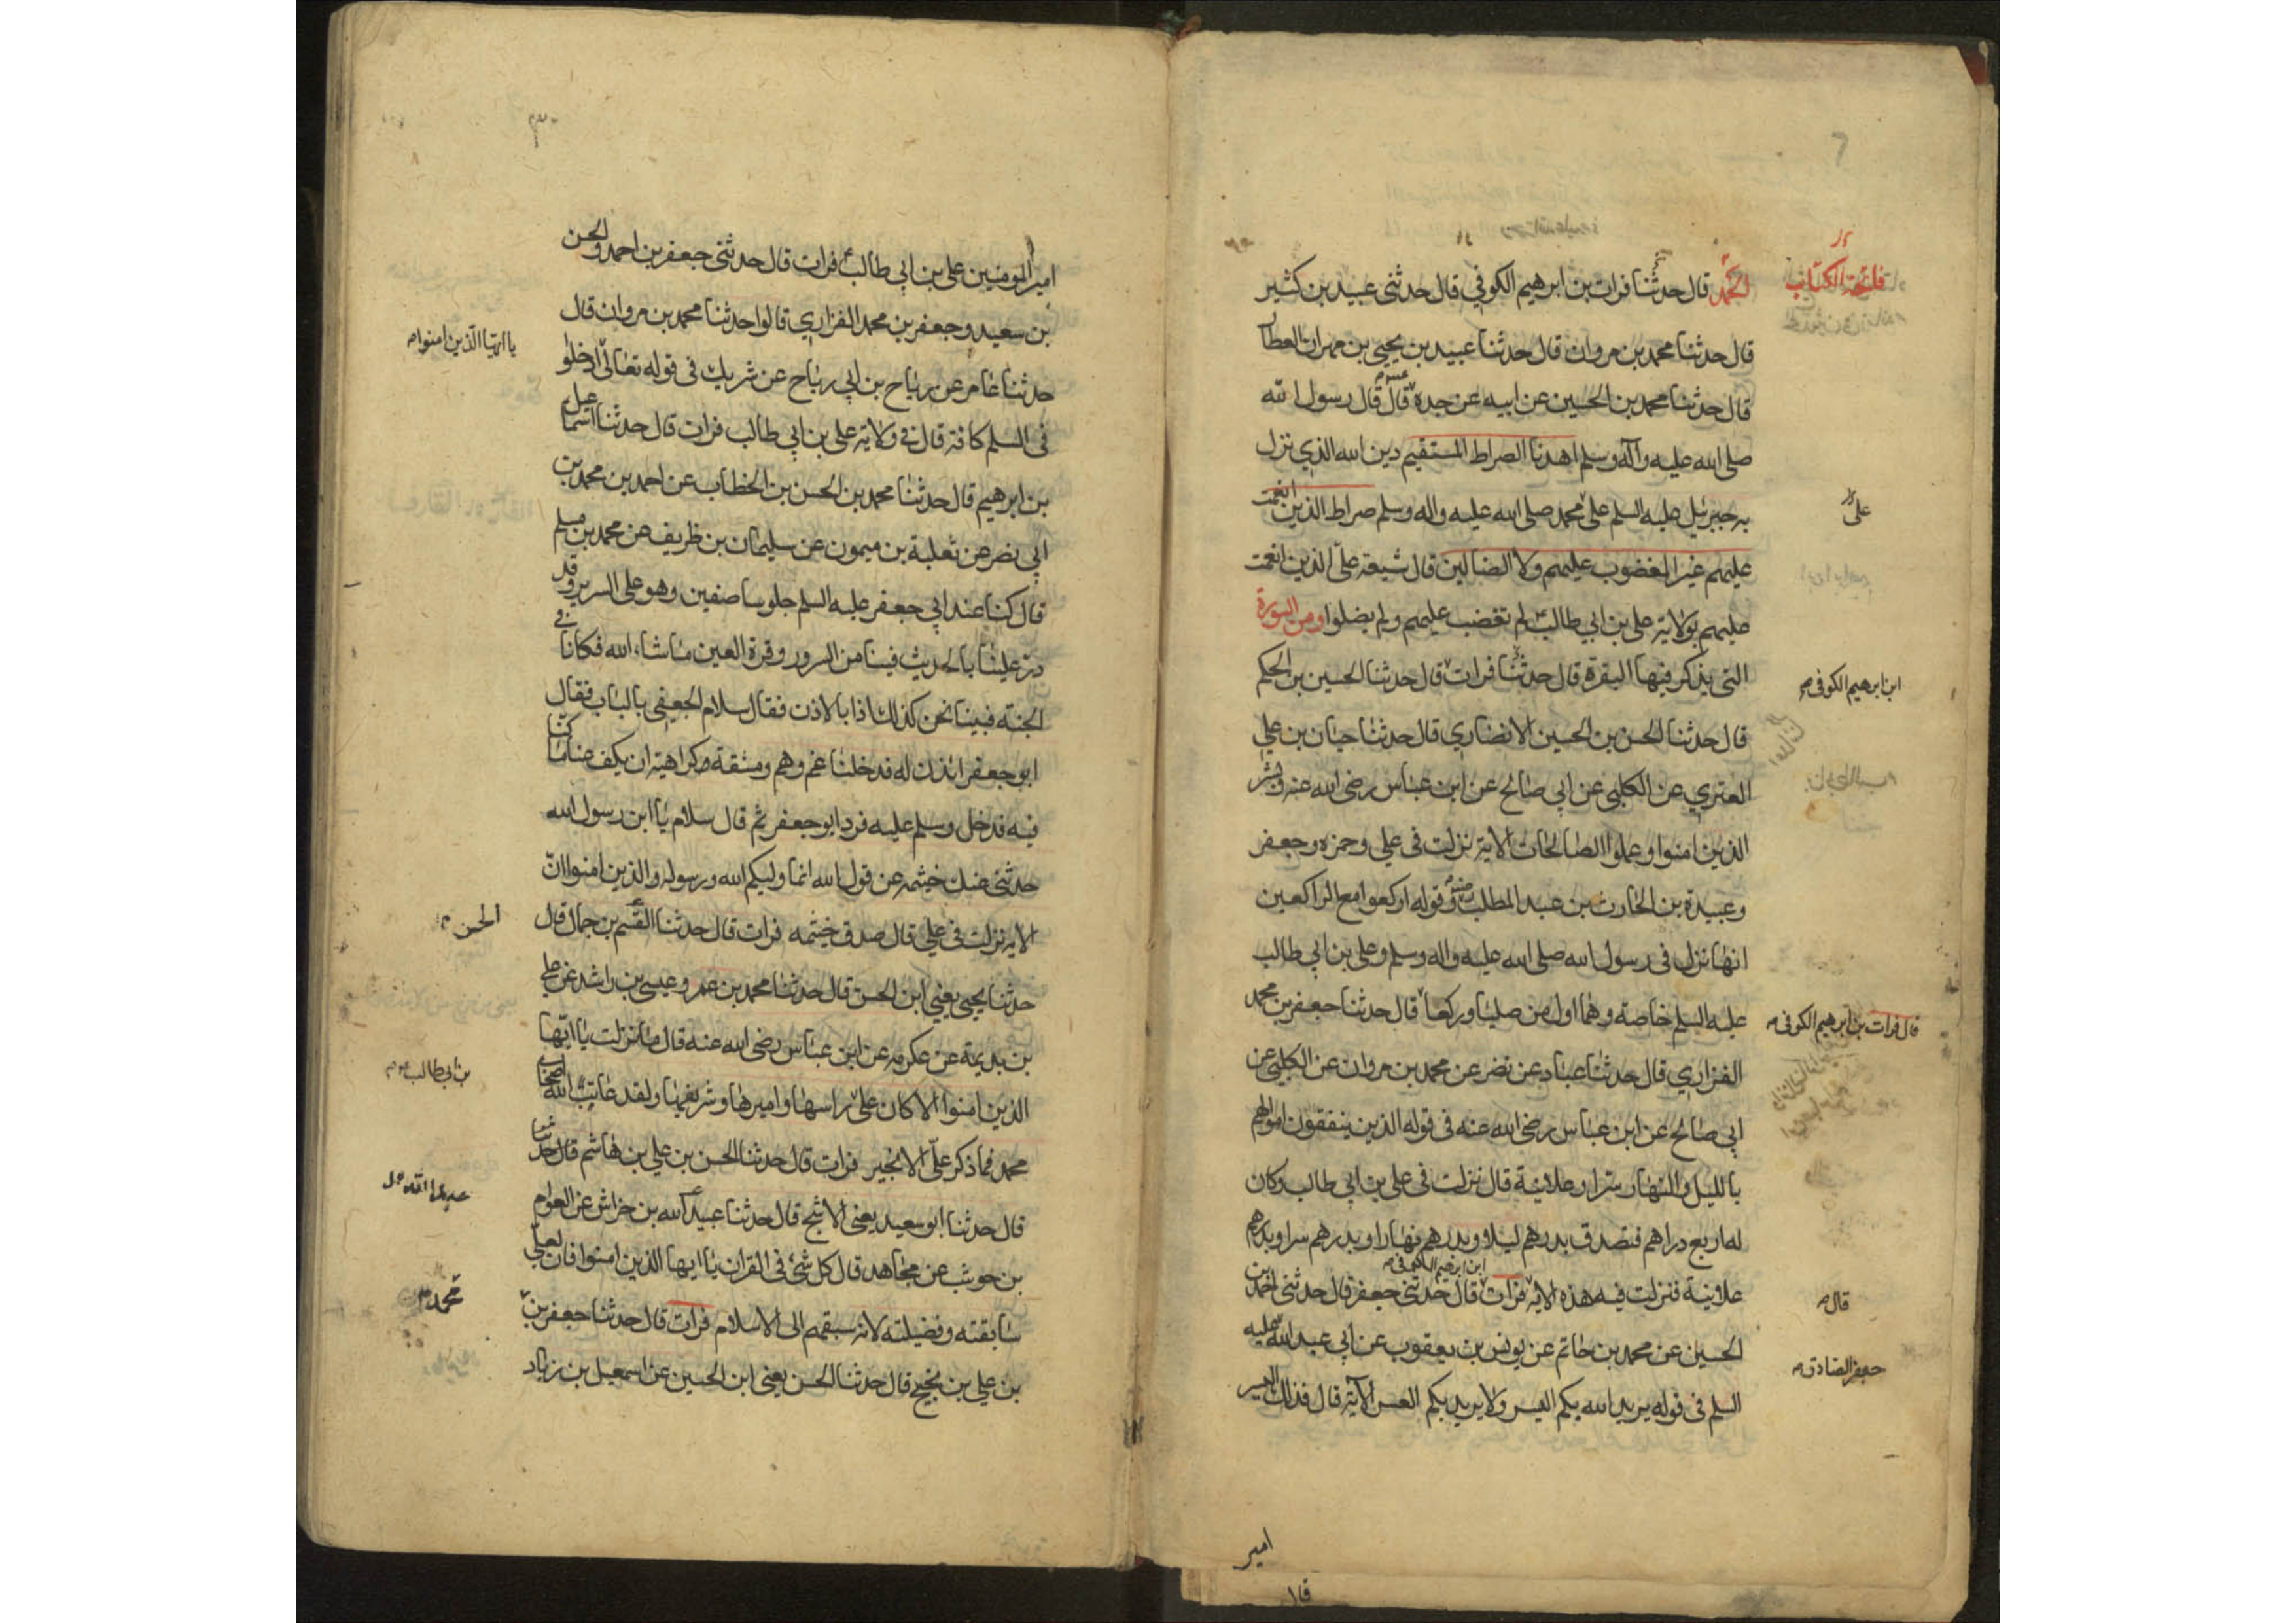 فاتحة الكتاب
الحمد قال حدثنا فرات بن ابرهيم الكوفي قال حدثنى عبيد بن كثير
قال حدثنا محمد بن مروان قال حدثنا عبيد بن يحيى بن مهران العطار
قال حدثنا محمد بن الحسين عن ابيه عن جده قال قال رسول الله
صلى الله عليه وآله وسلم اهدنا الصراط المستقيم دين الله الذي نزل
به جبرئيل عليه السلم على محمد صلى الله عليه واله وسلم صراط الذين انعمت
على
عليهم غير المغضوب عليهم ولا الضالين قال شيعة علي الذين انعمت
عليهم بولاية على بن ابي طالب لم تغضب عليهم ولم يضلوا ومن السورة
التى يذكر فيها البقرة قال حدثنا فرات قال حدثنا الحسين بن الحكم
ابن ابرهيم الكوفى
قال حدثنا الحسن بن الحسين الانصاري قال حدثنا حبان بن علي
العنزي عن الكلبى عن ابي صالح عن ابن عباس رضى الله عنه وبشر
الذين امنوا وعملوا الصالحات الاية نزلت فى علي وحمزه وجعفر
وعبيدة بن الحارث بن عبد المطلب وقوله اركعوا مع الراكعين
انها نزل فى رسول الله صلى الله عليه واله وسلم وعلى بن ابي طالب
عليه السلم خاصة وهما اول من صليا وركعا قال حدثنا جعفر بن محمد
قال فرات بن ابرهيم الكوفى
الفزاري قال حدثنا عباد عن نضر عن محمد بن مروان عن الكلبي عن
ابي صالح عن ابن عباس رضى الله عنه فى قوله الذين ينفقون اموالهم
بالليل والنهار سرا وعلانية قال نزلت فى على بن ابي طالب وكان
له اربع دراهم فتصدق بدرهم ليلا وبدرهم نهارا وبدرهم سرا وبدرهم
علانية فنزلت فيه هذه الاية فرات ابن ابرهيم الكوفى قال حدثنى جعفر قال حدثنى احمد بن
قال
الحسين عن محمد بن حاتم عن يونس بن يعقوب عن ابي عبد الله عليه
جعفر الصادق
السلم فى قوله يريد الله بكم اليسر ولا يريد بكم العسر الآية قال فذلك اليسر
امير
امير المومنين على بن ابي طالب فرات قال حدثنى جعفر بن احمد والحسن
بن سعيد وجعفر بن محمد الفزاري قالوا حدثنا محمد بن مروان قال
يا ايها الذين امنوا
حدثنا عامر عن رياح بن ابي رياح عن شريك فى قوله تعالى ادخلوا
فى السلم كافة قال فى ولاية على بن ابي طالب فرات قال حدثنا اسماعيل
بن ابرهيم قال حدثنا محمد بن الحسن بن الخطاب عن احمد بن محمد بن
ابي نصر عن ثعلبة بن ميمون عن سليمان بن ظريف عن محمد بن مسلم
قال كنا عند ابي جعفر عليه السلم جلوسا صفين وهو على السرير وقد
در علينا بالحديث فينا من السرور وقرة العين ما شاء الله فكانا فى
الجنة فبينا نحن كذلك اذا بالاذن فقال سلام الجعفى بالباب فقال
ابو جعفر ائذن له فدخلنا غم وهم ومشقة كراهية ان يكف عنا ما كنا
فيه فدخل وسلم عليه فرد ابو جعفر ثم قال سلام يا ابن رسول الله
حدثنى عنك خيثمه عن قول الله انما وليكم الله ورسوله والذين امنوا ان
الاية نزلت فى علي قال صدق خيثمه فرات قال حدثنا القسم بن جمال قال
الحسن
حدثنا يحيى يعني ابن الحسن قال حدثنا محمد بن عمر وعيسى بن راشد عن علي
بن بديمة عن عكرمه عن ابن عباس رضى الله عنه قال ما نزلت يا ايها
بن ابي طالب
الذين امنوا الا كان على راسها واميرها وشريفها ولقد عاتب الله اصحاب
محمد فما ذكر علي الا بخير فرات قال حدثنا الحسن بن علي بن هاشم قال حدثنا
قال حدثنا ابو سعيد يعنى الاشج قال حدثنا عبيد الله بن خراش عن العوام
بن حوشب عن مجاهد قال كل شئ فى القران يا ايها الذين امنوا فان لعلي
محمد
سابقته وفضيلته لانه سبقهم الى الاسلام فرات قال حدثنا جعفر بن
بن علي بن نجيح قال حدثنا الحسن يعنى ابن الحسين عن اسمعيل بن زياد